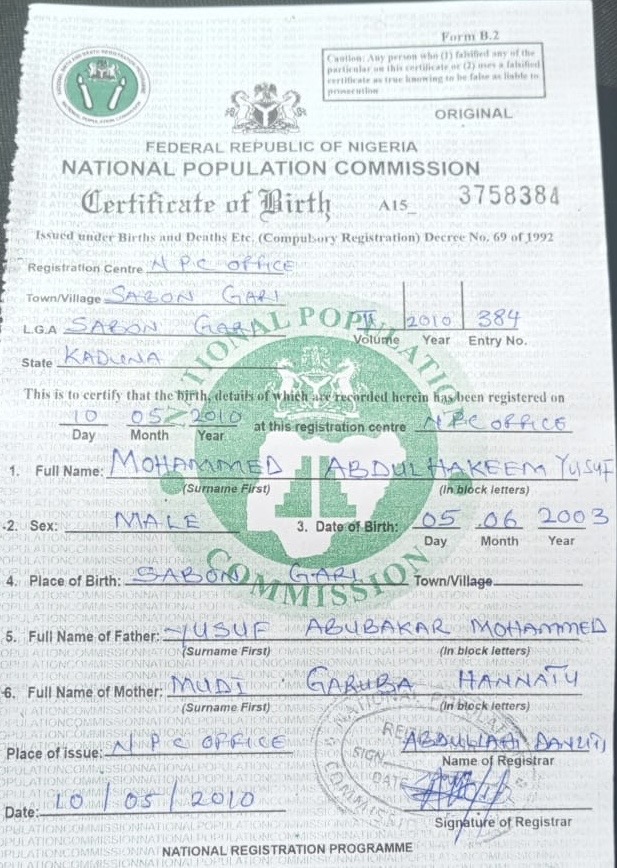 Form B.2
Caution: Any person who (1) falsified any of the
particular on this certificate or (2) uses a falsified
certificate as true knowing to be false as liable to
prosecution
ORIGINAL
FEDERAL REPUBLIC OF NIGERIA
NATIONAL POPULATION COMMISSION
Certificate of Birth A15_ 3758384
Issued under Births and Deaths Etc. (Compulsory Registration) Decree No. 69 of 1992
Registration Centre NPC OFFICE
Town/Village SABON GARI
L.G.A SABON GARI II 2010 384
Volume Year Entry No.
State KADUNA
This is to certify that the birth, details of which are recorded herein has been registered on
10 05 2010 at this registration centre NPC OFFICE
Day Month Year
1. Full Name: MOHAMMED ABDULHAKEEM YUSUF
(Surname First) (In block letters)
2. Sex: MALE 3. Date of Birth: 05 06 2003
Day Month Year
4. Place of Birth: SABON GARI Town/Village
5. Full Name of Father: YUSUF ABUBAKAR MOHAMMED
(Surname First) (In block letters)
6. Full Name of Mother: MUDI GARUBA HANNATU
(Surname First) (In block letters)
Place of issue: NPC OFFICE ABDULLAHI
Name of Registrar
Date: 10/05/2010
Signature of Registrar
NATIONAL REGISTRATION PROGRAMME
NATIONAL POPULATION
COMMISSION